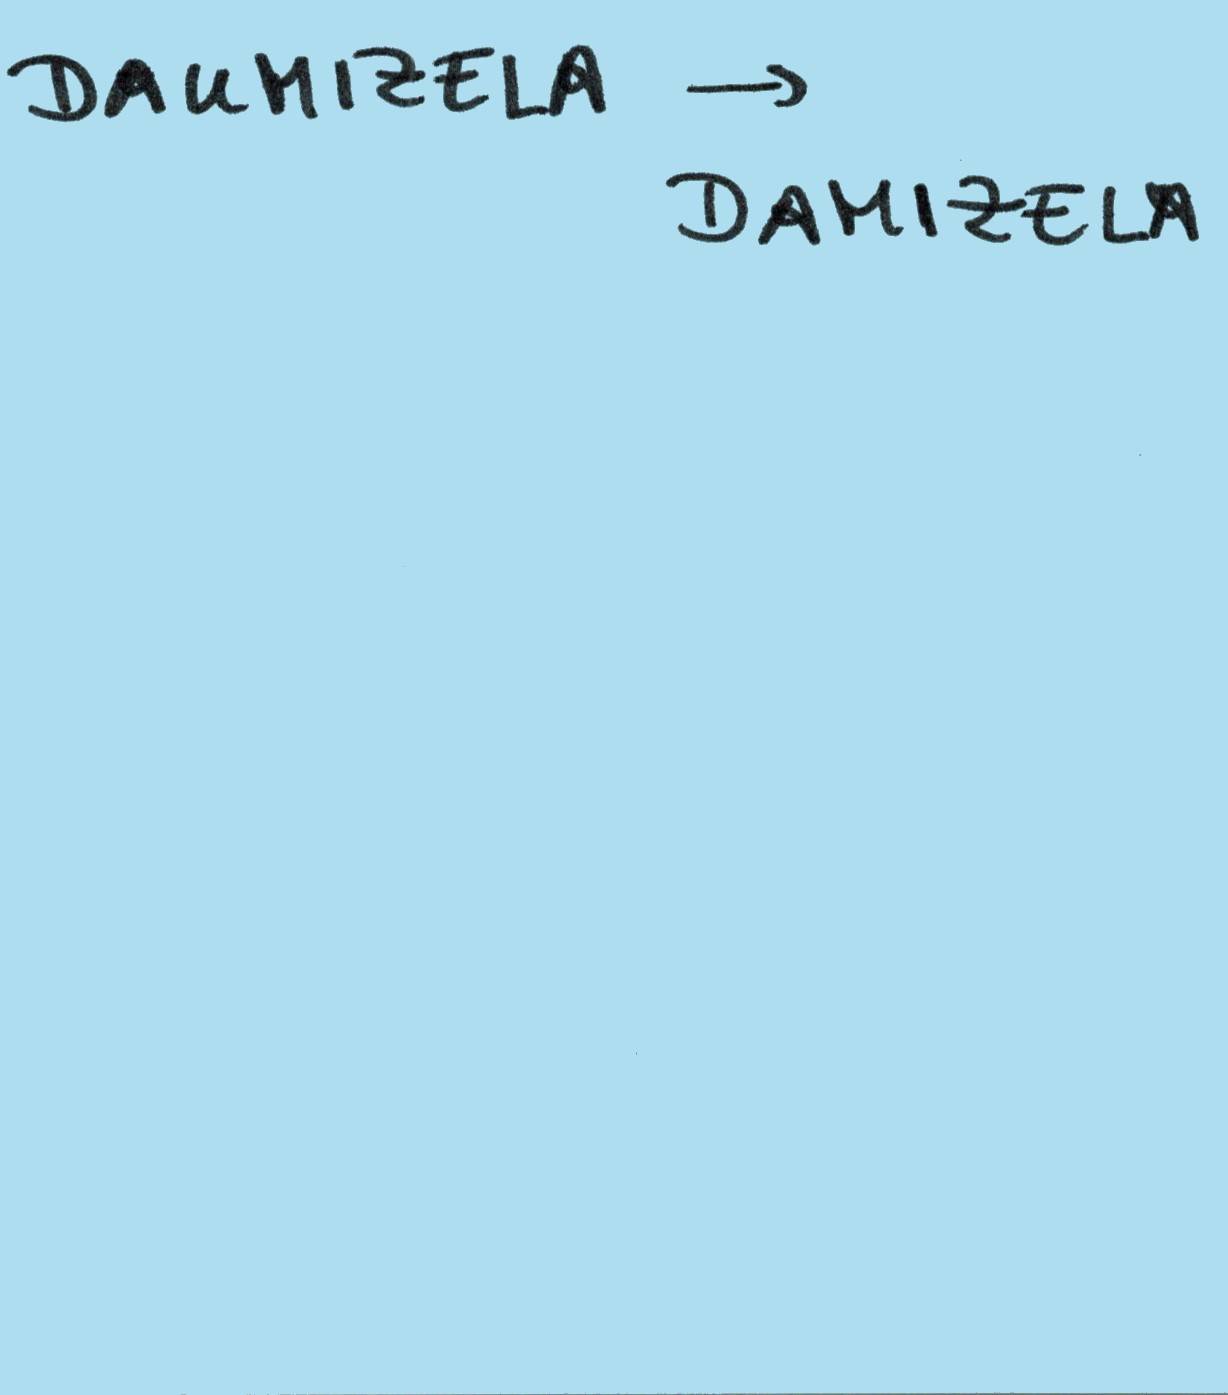 DAUMIZELA →
DAMIZELA